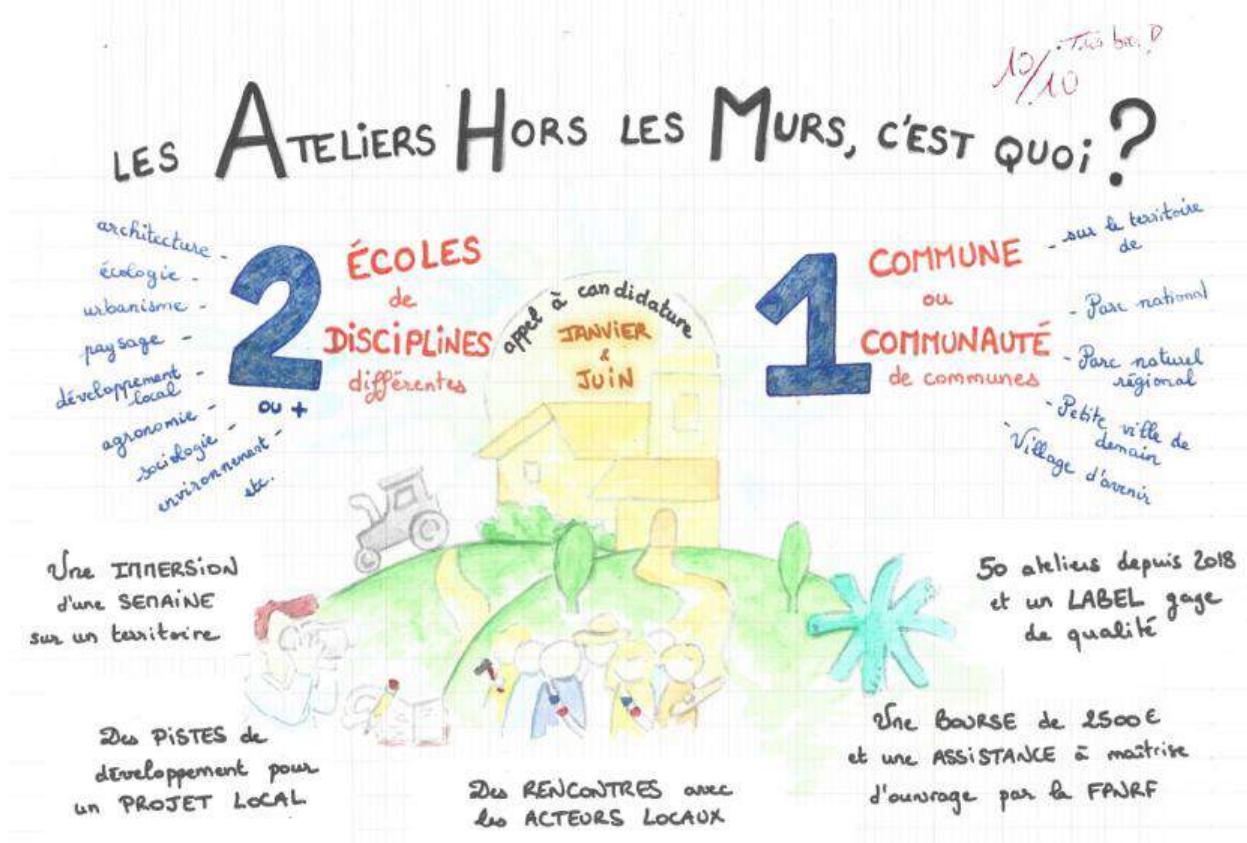 10/10 Très bien !
LES ATELIERS HORS LES MURS, C'EST QUOI ?
architecture -
écologie -
urbanisme -
paysage -
développement -
local
agronomie -
sociologie -
environnement -
etc.
2
ou +
ÉCOLES
de
DISCIPLINES
différentes
appel à candidature
JANVIER
&
JUIN
1
COMMUNE
ou
COMMUNAUTÉ
de communes
- sur le territoire
de
- Parc national
- Parc naturel
régional
- Petite ville de
demain
- Village d'avenir
Une IMMERSION
d'une SEMAINE
sur un territoire
50 ateliers depuis 2018
et un LABEL gage
de qualité
Des PISTES de
développement pour
un PROJET LOCAL
Des RENCONTRES avec
les ACTEURS LOCAUX
Une BOURSE de 2500€
et une ASSISTANCE à maîtrise
d'ouvrage par la FPNRF